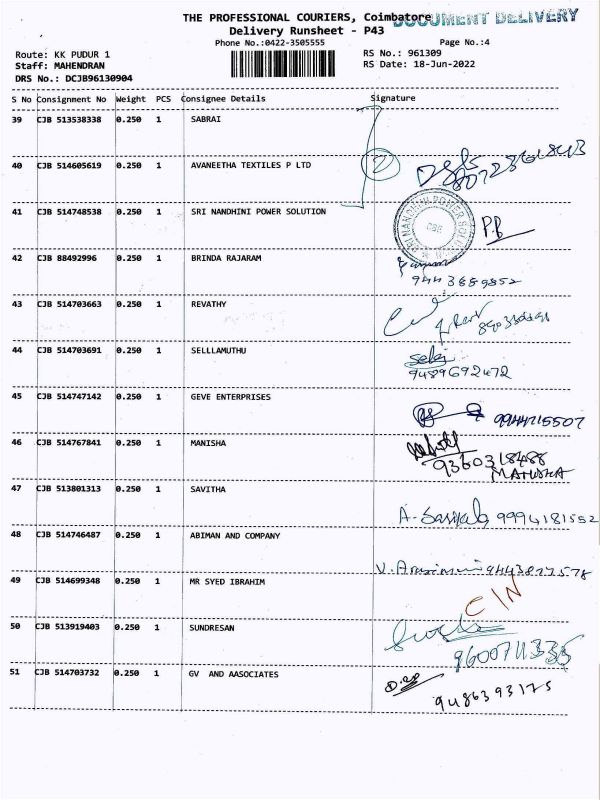 THE PROFESSIONAL COURIERS, Coimbatore
DOCUMENT DELIVERY
Delivery Runsheet - P43
Phone No.:0422-3505555
Page No.:4
Route: KK PUDUR 1
RS No.: 961309
Staff: MAHENDRAN
RS Date: 18-Jun-2022
DRS No.: DCJB96130904
S No Consignment No Weight PCS Consignee Details Signature
39 CJB 513538338 0.250 1 SABRAI
2
40 CJB 514605619 0.250 1 AVANEETHA TEXTILES P LTD
41 CJB 514748538 0.250 1 SRI NANDHINI POWER SOLUTION
SRI NANDHINI POWER SOLUTION
CBE
P.B
42 CJB 88492996 0.250 1 BRINDA RAJARAM
9443689852
43 CJB 514703663 0.250 1 REVATHY
44 CJB 514703691 0.250 1 SELLLAMUTHU
9489692472
45 CJB 514747142 0.250 1 GEVE ENTERPRISES
9944215507
46 CJB 514767841 0.250 1 MANISHA
9360318488
MANISHA
47 CJB 513801313 0.250 1 SAVITHA
9994181552
48 CJB 514746487 0.250 1 ABIMAN AND COMPANY
9443877578
49 CJB 514699348 0.250 1 MR SYED IBRAHIM
C/N
50 CJB 513919403 0.250 1 SUNDRESAN
9600711335
51 CJB 514703732 0.250 1 GV AND AASOCIATES
9486393175